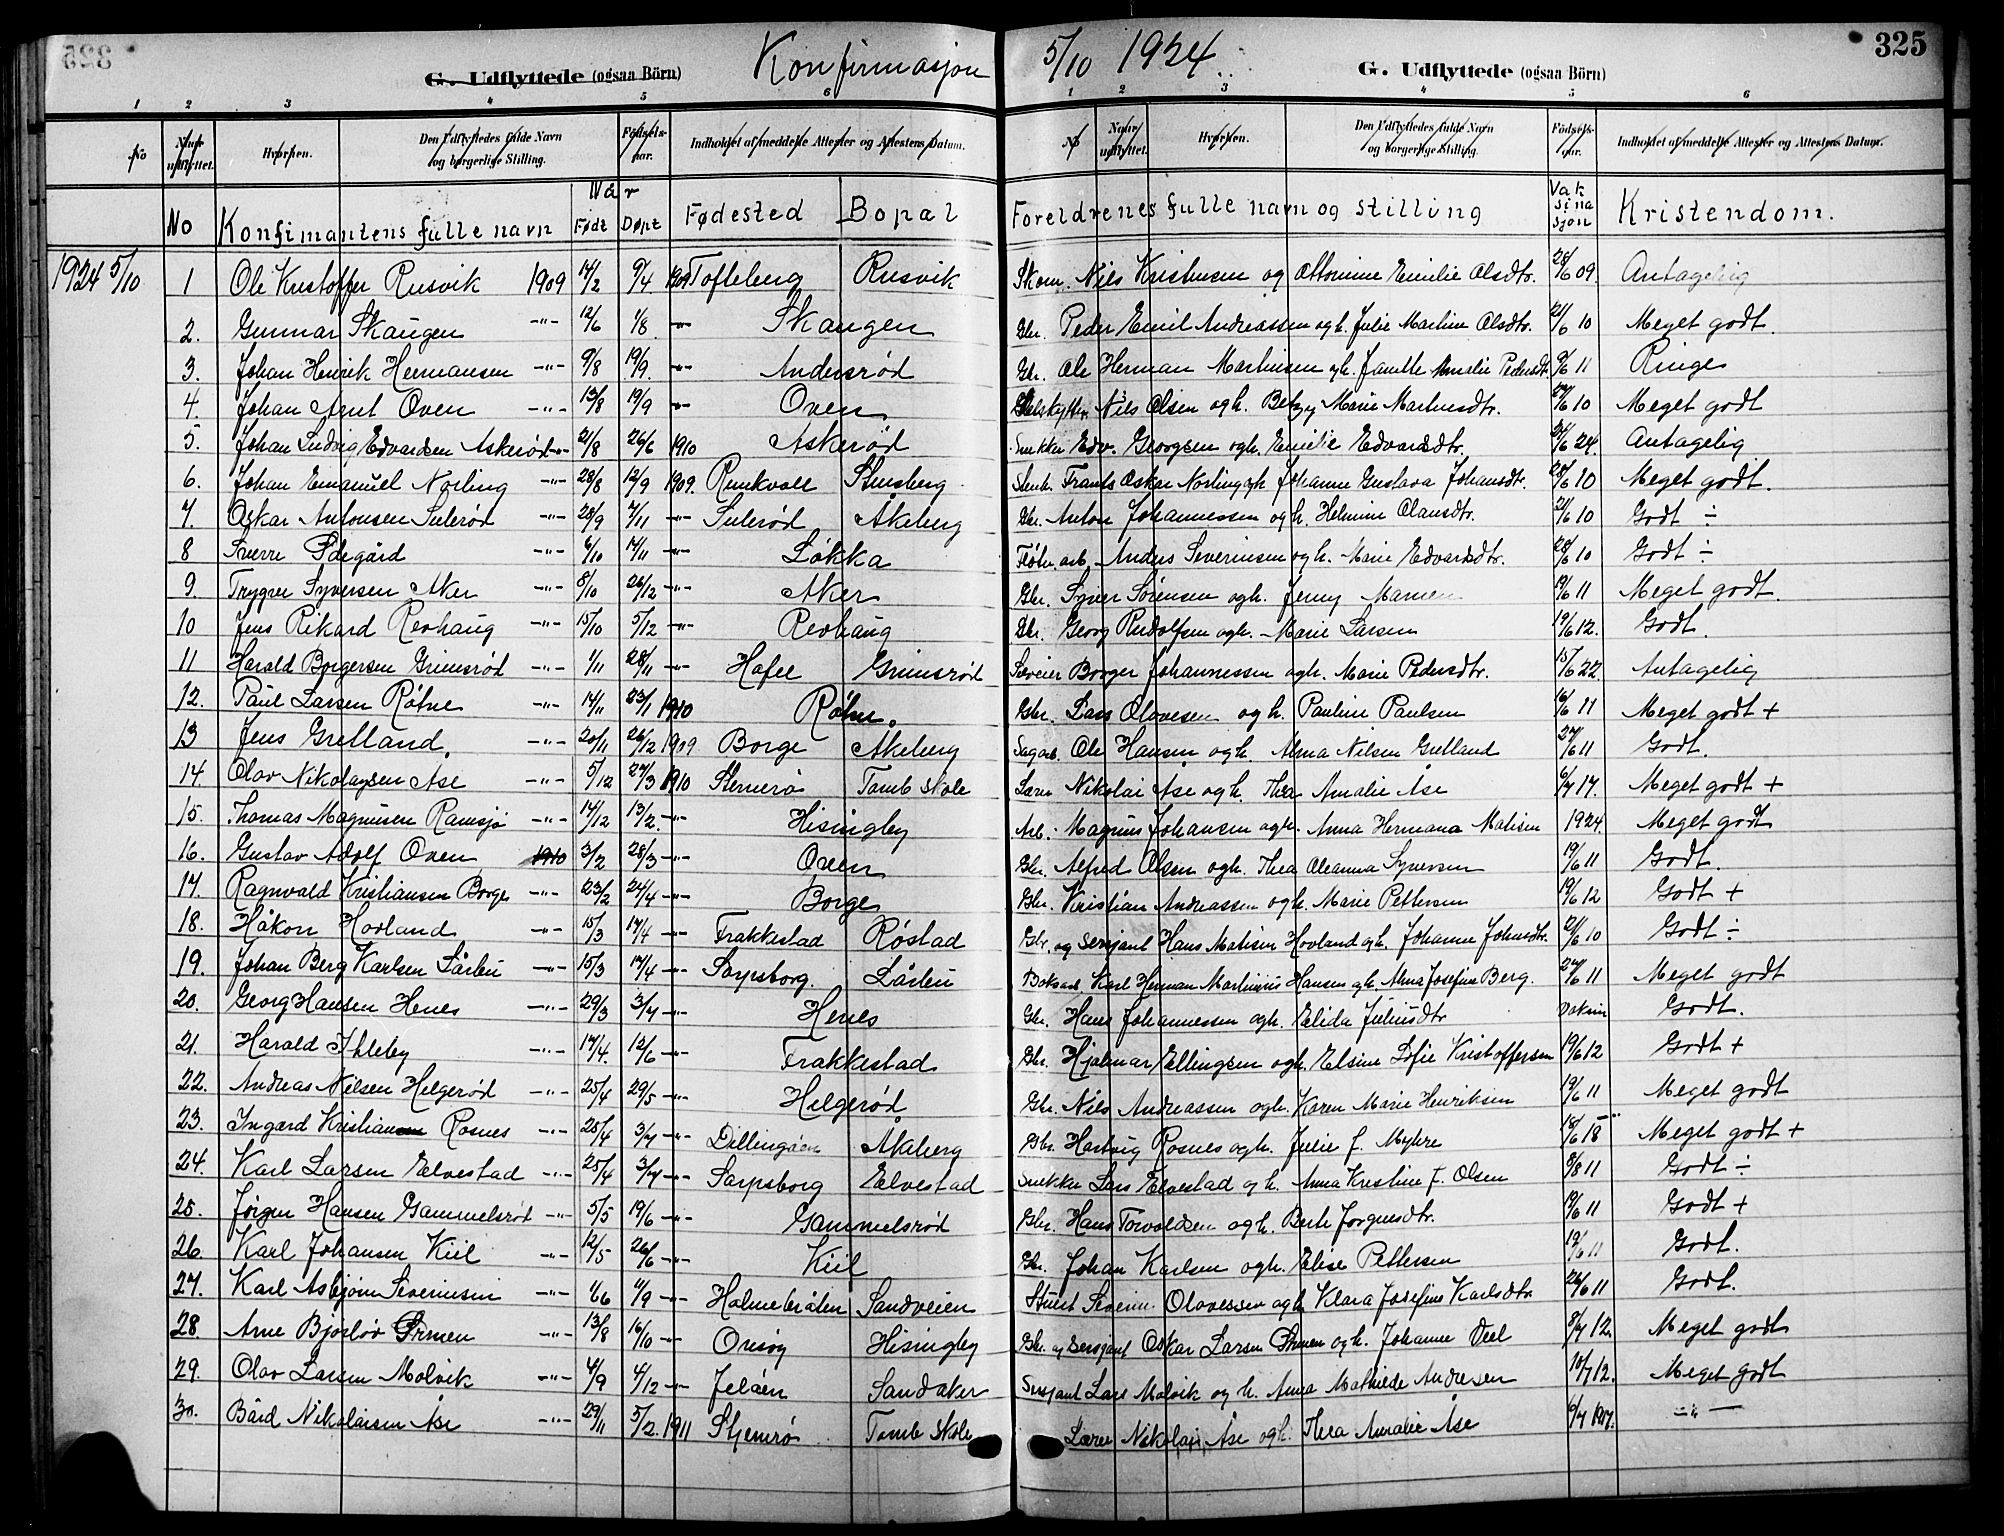 325
Konfirmasjon 5/10 1924.
G. Udflyttede (ogsaa Börn)
G. Udflyttede (ogsaa Börn)
1 2 3 4 5 6
1 2 3 4 5 6
No Naar udflyttet. Hvorhen. Den Udflyttedes fulde Navn og borgerlige Stilling. Födsels-aar. Indholdet af meddelte Attester og Attestens Datum.
No Naar udflyttet. Hvorhen. Den Udflyttedes fulde Navn og borgerlige Stilling. Födsels-aar. Indholdet af meddelte Attester og Attestens Datum.
No Konfimantens fulle navn Når Født Døpt Fødested Bopal Foreldrenes fulle navn og stilling Vaksinasjon Kristendom.
1924 5/10 1 Ole Kristoffer Rusvik 1909 14/2 9/4 1909 Tofteberg Rusvik Skom. Nils Kristensen og Ottomine Emilie Olsdtr. 28/6 09. Antagelig
2. Gunnar Skaugen -"- 12/6 1/8 -"- Skaugen Gbr. Peder Emil Andreassen og h. Julie Martine Olsdtr. 21/6 10 Meget godt.
3. Johan Henrik Hermansen -"- 9/8 19/9. -"- Andersrød Gbr. Ole Herman Martinsen og h. Janette Amalie Pedersdtr. 9/6 11 Ringe
4. Johan Arnt Oven -"- 13/8 19/9 -"- Oven Nils Olsen og h. Betzy Marie Martinsdtr. 21/6 10 Meget godt
5. Johan Ludvig Edvardsen Askerød -"- 21/8 26/6 1910 Askerød Snekker Edv. Georgsen og h. Emilie Edvardsdtr. 24/6 24. Antagelig
6. Johan Emanuel Norling -"- 28/8 12/9 1909. Runkvoll Stensberg Stenh. Frants Oskar Norling og h. Johanne Gustava Johansdtr. 28/6 10 Meget godt.
7. Oskar Antonsen Sulerød -"- 28/9 7/11 -"- Sulerød Åkeberg Gbr. Anton Johannessen og h. Helmine Olausdtr. 21/6 10 Godt ÷
8 Sverre Ødegård -"- 6/10 14/11 -"- Løkka Fløter arb. Anders Severinsen og h. Marie Edvardsdtr. 28/6 10 Godt ÷
9. Trygve Syversen Aker -"- 8/10 26/12 -"- Aker Gbr. Syver Sørensen og h. Jenny Mamen 19/6 11 Meget godt.
10 Jens Rikard Revhaug -"- 15/10 5/12 -"- Revhaug Gbr. Georg Rudolfsen og h. Marie Larsen 19/6 12. Godt.
11 Harald Borgersen Grimsrød -"- 1/11 28/11 -"- Hafle Grimsrød Borger Johannessen og h. Marie Pedersdtr. 15/6 22. Antagelig
12. Paul Larsen Røtne -"- 14/11 23/1 1910 Røtne. Gbr. Lars Olavesen og h. Pauline Paulsen 16/6 11 Meget godt +
13 Jens Gretland. -"- 20/11 26/12 1909 Borge Åkeberg Sagarb. Ole Hansen og h. Alma Nilsen Gretland 27/6 11 Godt.
14. Olav Nikolaysen Åse -"- 5/12 27/3 1910 Stemerø Tomb skole Lærer Nikolai Åse og h. Thea Amalie Åse 6/7 17. Meget godt +
15. Thomas Magnusen Ramsjø -"- 14/12 13/2. -"- Hisingby Arb. Magnus Johansen og h. Anna Hermana Matisen 1924. Meget godt
16. Gustav Adolf Oven 1910 3/2 28/3 -"- Oven Gbr. Alfred Olsen og h. Thea Oleanna Syversen 19/6 11 Godt.
17. Ragnvald Kristiansen Borge -"- 23/2 24/4 -"- Borge Gbr. Kristian Andreassen og h. Marie Pettersen 19/6 12 Godt +
18. Håkon Hovland -"- 15/3 17/4 -"- Trakkestad Røstad Gbr. og sersjant Hans Matisen Hovland og h. Johanne Johnsdtr. 21/6 10 Godt ÷
19. Johan Berg Karlsen Lårbu -"- 15/3 17/4 -"- Sarpsborg. Lårbu Karl Herman Martinius Hansen og h. Alma Josefine Berg. 27/6 11 Meget godt
20. Georg Hansen Henes -"- 29/3 3/7 -"- Henes Gbr. Hans Johannessen og h. Elida Juliusdtr Godt.
21. Harald Ihleby -"- 17/4. 12/6 -"- Trakkestad Gbr. Hjalmar Ellingsen og h. Elsine Sofie Kristoffersen 19/6 12 Godt +
22. Andreas Nilsen Helgerød -"- 25/4 29/5 -"- Helgerød Gbr. Nils Andreassen og h. Karen Marie Henriksen 19/6 11 Meget godt
23. Ingard Kristiansen Rosnes -"- 25/4 3/7 -"- Dillingøen Åkeberg Gbr. Hartvig Rosnes og h. Julie f. Myhre 18/6 18 Meget godt +
24. Karl Larsen Elvestad -"- 25/4 3/7 -"- Sarpsborg Elvestad Snekker Lars Elvestad og h. Anna Kristine f. Olsen 8/8 11 Godt ÷
25. Jørgen Hansen Gammelsrød -"- 5/5 19/6 -"- Gammelsrød Gbr. Hans Torvaldsen og h. Berte Jørgensdtr. 19/6 11 Godt +
26. Karl Johansen Kiil -"- 12/5 26/6 -"- Kiil Gbr. Johan Karlsen og h. Elise Pettersen 19/6 11 Godt.
27. Karl Asbjørn Severinsen -"- 1/6 4/9 -"- Holmebråten Sandveien Severin Olavessen og h. Klara Josefine Karlsdtr. 26/6 11 Godt.
28. Arne Bjørløv Ørmen -"- 13/8 16/10 -"- Onsøy Hisingby Gbr. og sersjant Oskar Larsen Ørmen og h. Johanne Deel 8/7 12. Meget godt
29. Olav Larsen Molvik -"- 4/9 4/12 -"- Jeløen Sandaker Sersjant Lars Molvik og h. Anna Mathilde Andresen 10/7 12. Meget godt
30. Bård Nikolaisen Åse -"- 29/11 5/2. 1911 Stjemrø Tomb skole Lærer Nikolai Åse og h. Thea Amalie Åse 6/7 1917. -"-